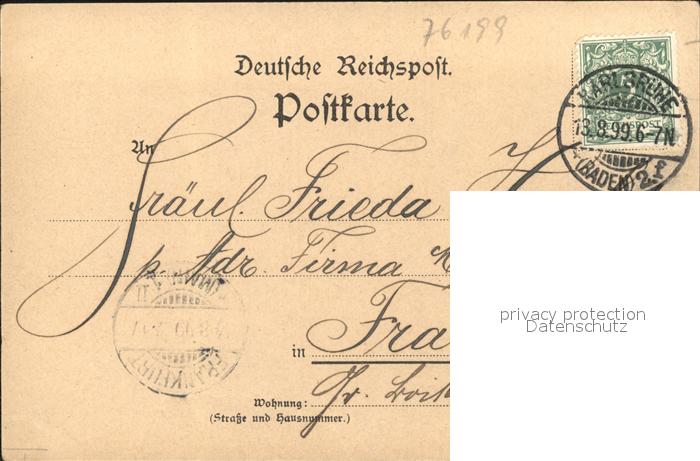 76199
Deutsche Reichspost.
Postkarte.
KARLSRUHE
13.8.99.6-7N
(BADEN) 2. f
An
Fräul. Frieda
p. Adr. Firma
privacy protection
Datenschutz
in Fra
FRANKFURT
Gr.
Wohnung:
(Straße und Hausnummer.)